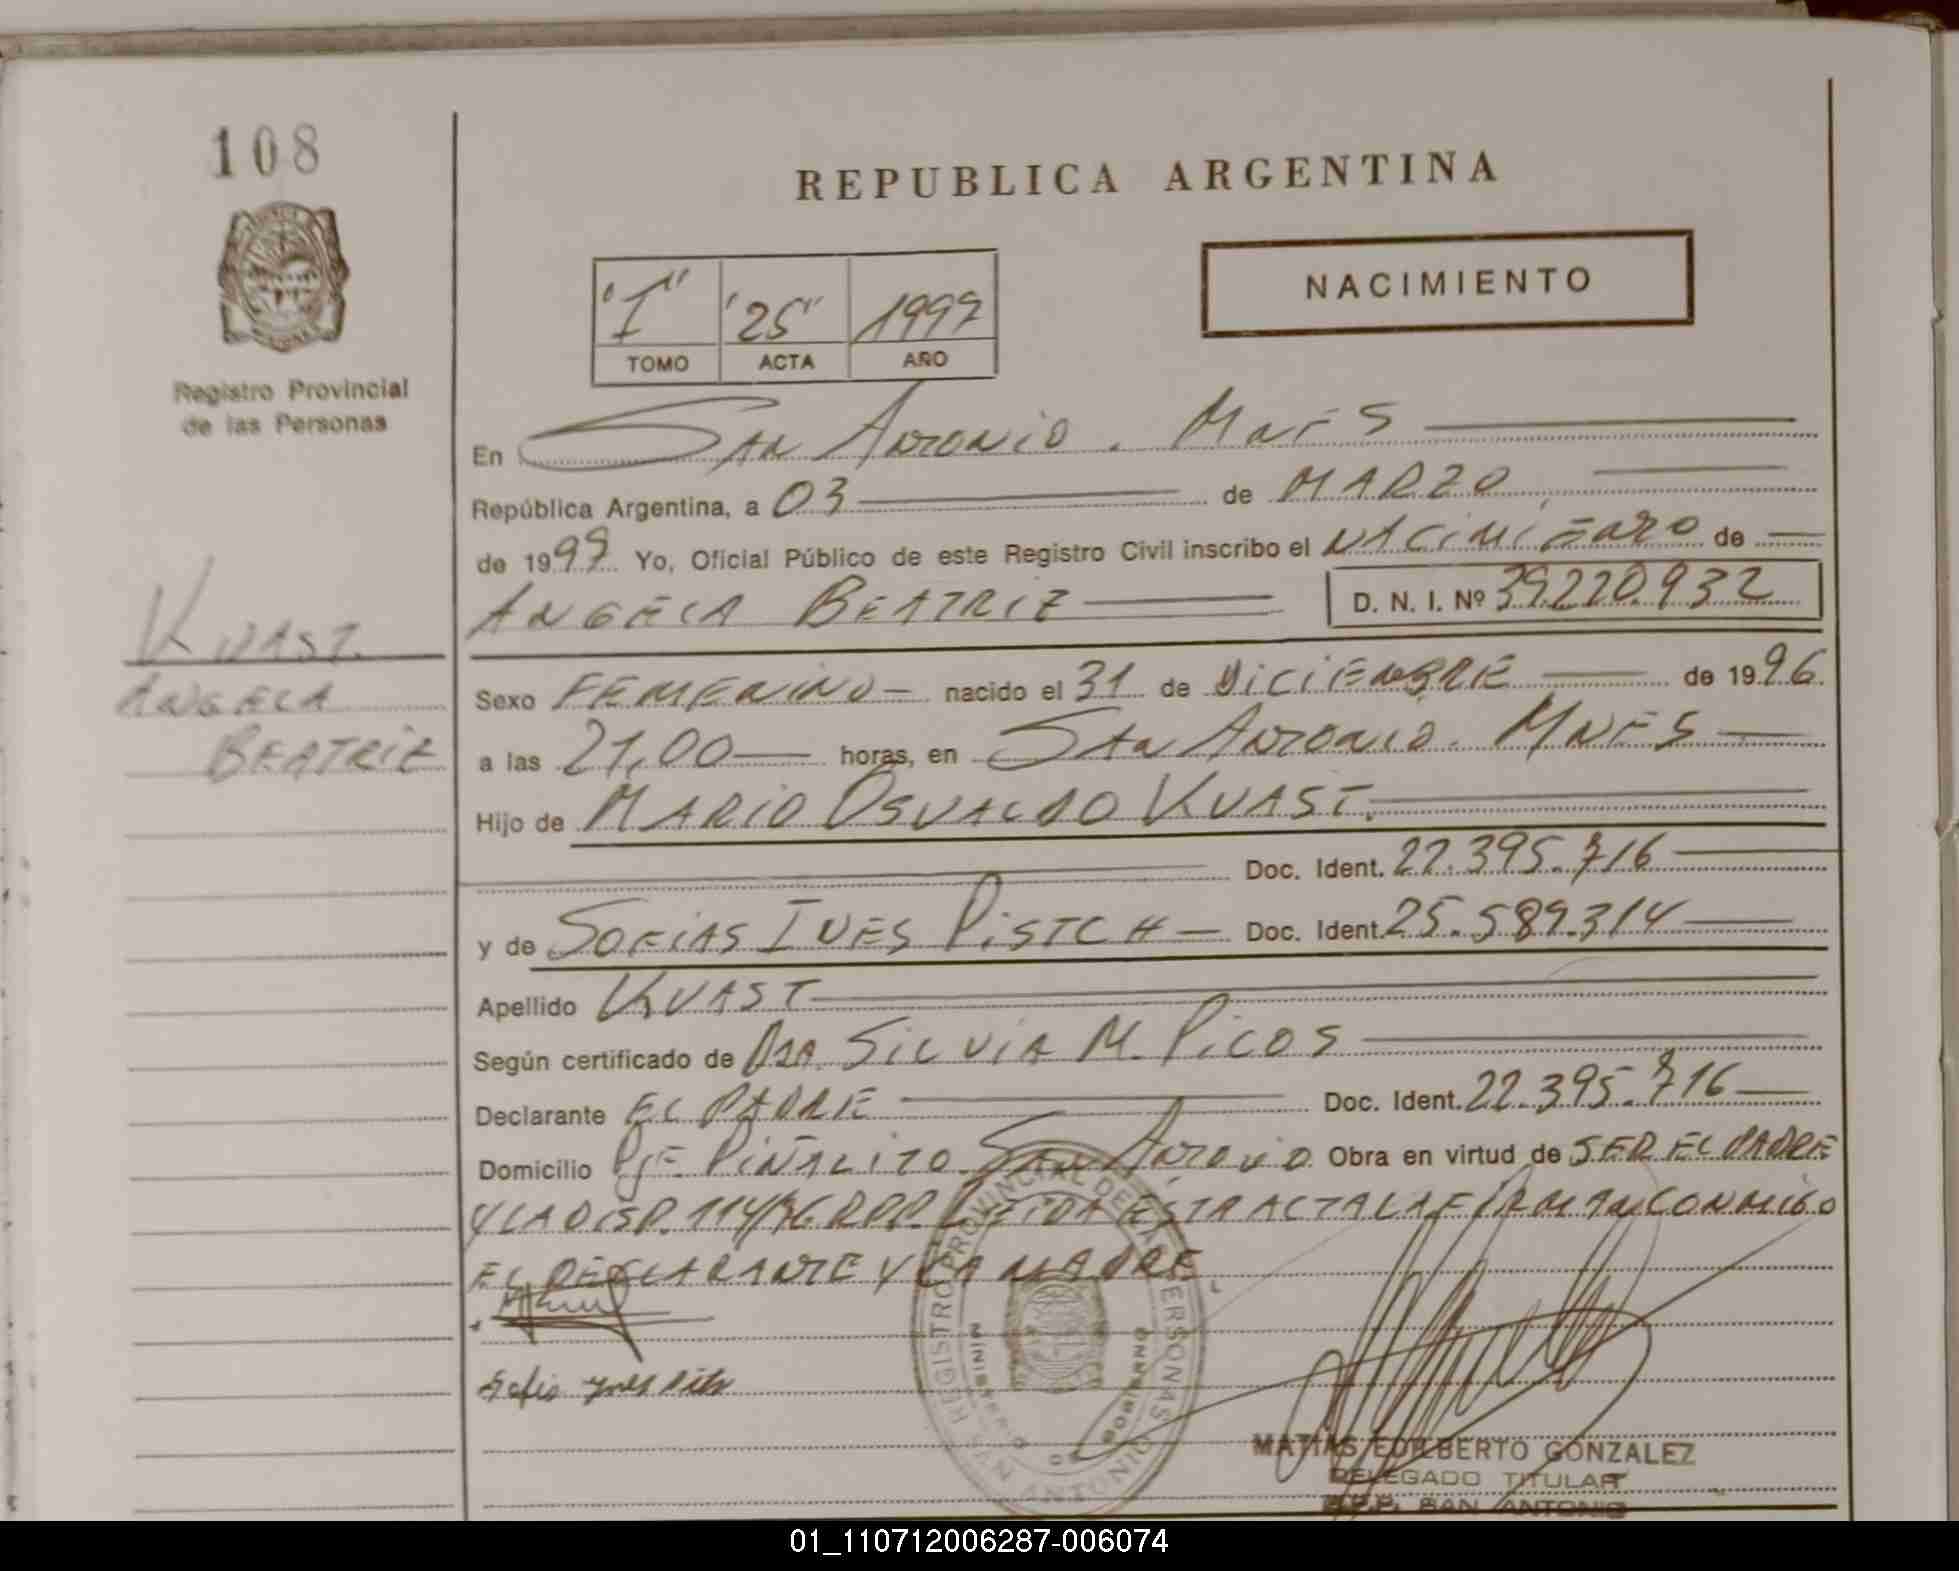 108
REPUBLICA ARGENTINA
NACIMIENTO
"I" "25" 1997
TOMO ACTA AÑO
Registro Provincial
de las Personas
En SAN ANTONIO. MNES
República Argentina, a 03 de MARZO
de 1997 Yo, Oficial Público de este Registro Civil inscribo el NACIMIENTO de
ANGELA BEATRIZ D. N. I. Nº 39.220.932
KUAST.
ANGELA
BEATRIZ
Sexo FEMENINO nacido el 31 de DICIEMBRE de 1996.
a las 21,00 horas, en SAN ANTONIO. MNES
Hijo de MARIO OSVALDO KUAST.
Doc. Ident. 22.395.716
y de SOFIAS INES PISTCH Doc. Ident. 25.589.314
Apellido KUAST
Según certificado de DRA. SILVIA M. PICOS
Declarante EL PADRE Doc. Ident. 22.395.716
Domicilio PJE PIÑALITO SAN ANTONIO Obra en virtud de SER EL PADRE
Y LA DISP. 114/96 RPP. LEIDA ESTRACTA LA FIRMAN CONMIGO
EL DECLARANTE Y LA MADRE
REGISTRO PROVINCIAL DE LAS PERSONAS
MINISTERIO DE GOBIERNO
SAN ANTONIO
MATIAS EDILBERTO GONZALEZ
DELEGADO TITULAR
R.P.P. SAN ANTONIO
01_110712006287-006074